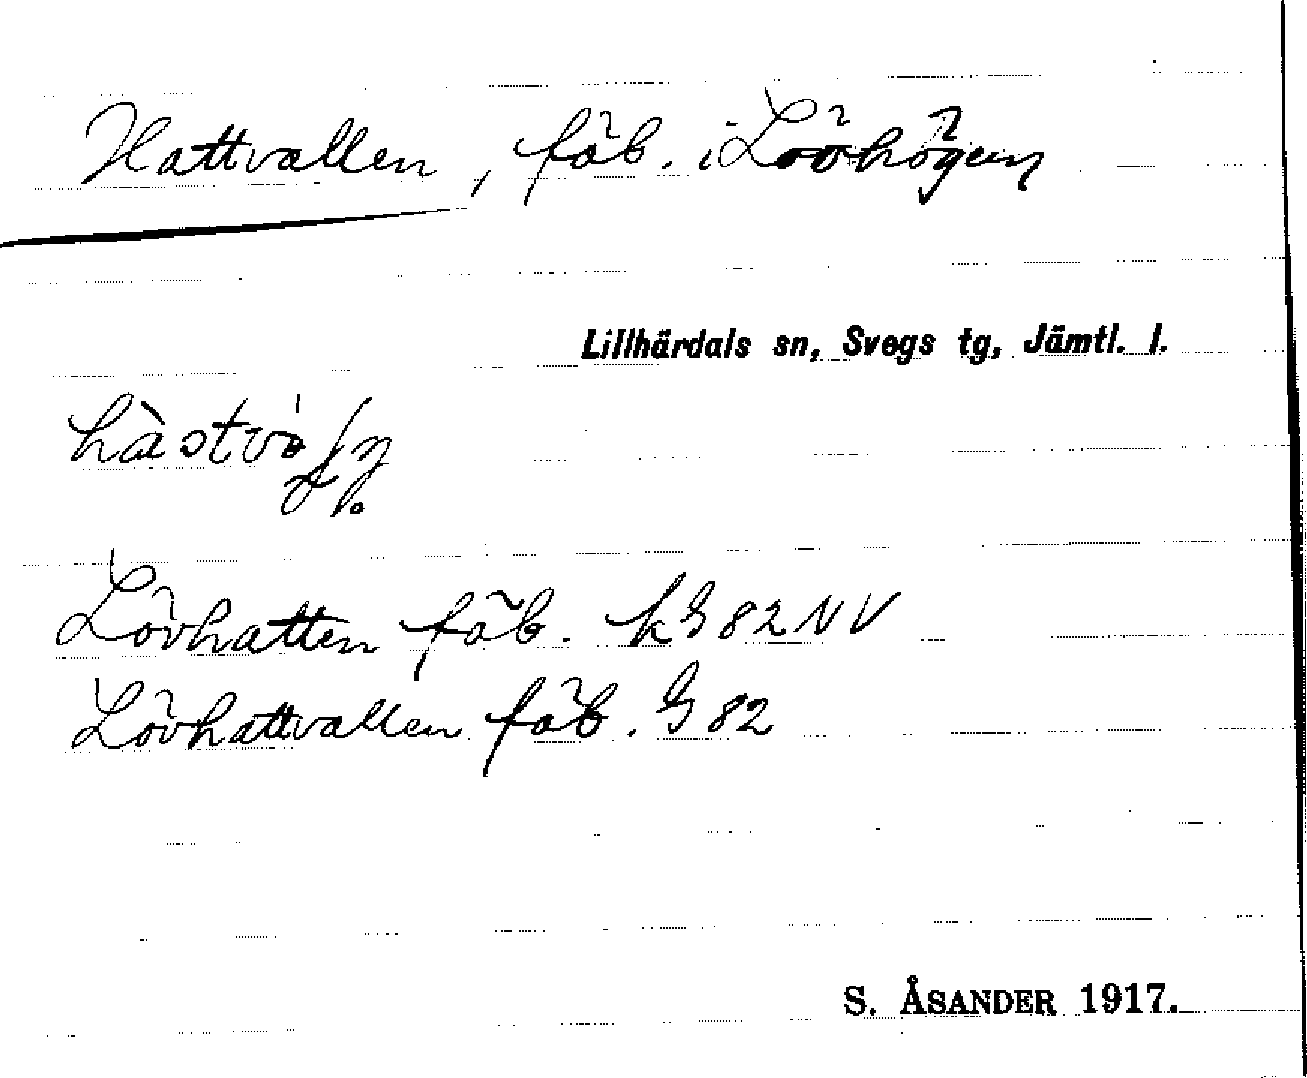 Hattvallen, fäb. i Lövhögen
Lillhärdals sn, Svegs tg, Jämtl. l.
Lövhatten fäb. kG82NV
Lövhattvallen fäb. G82
S. ÅSANDER 1917.